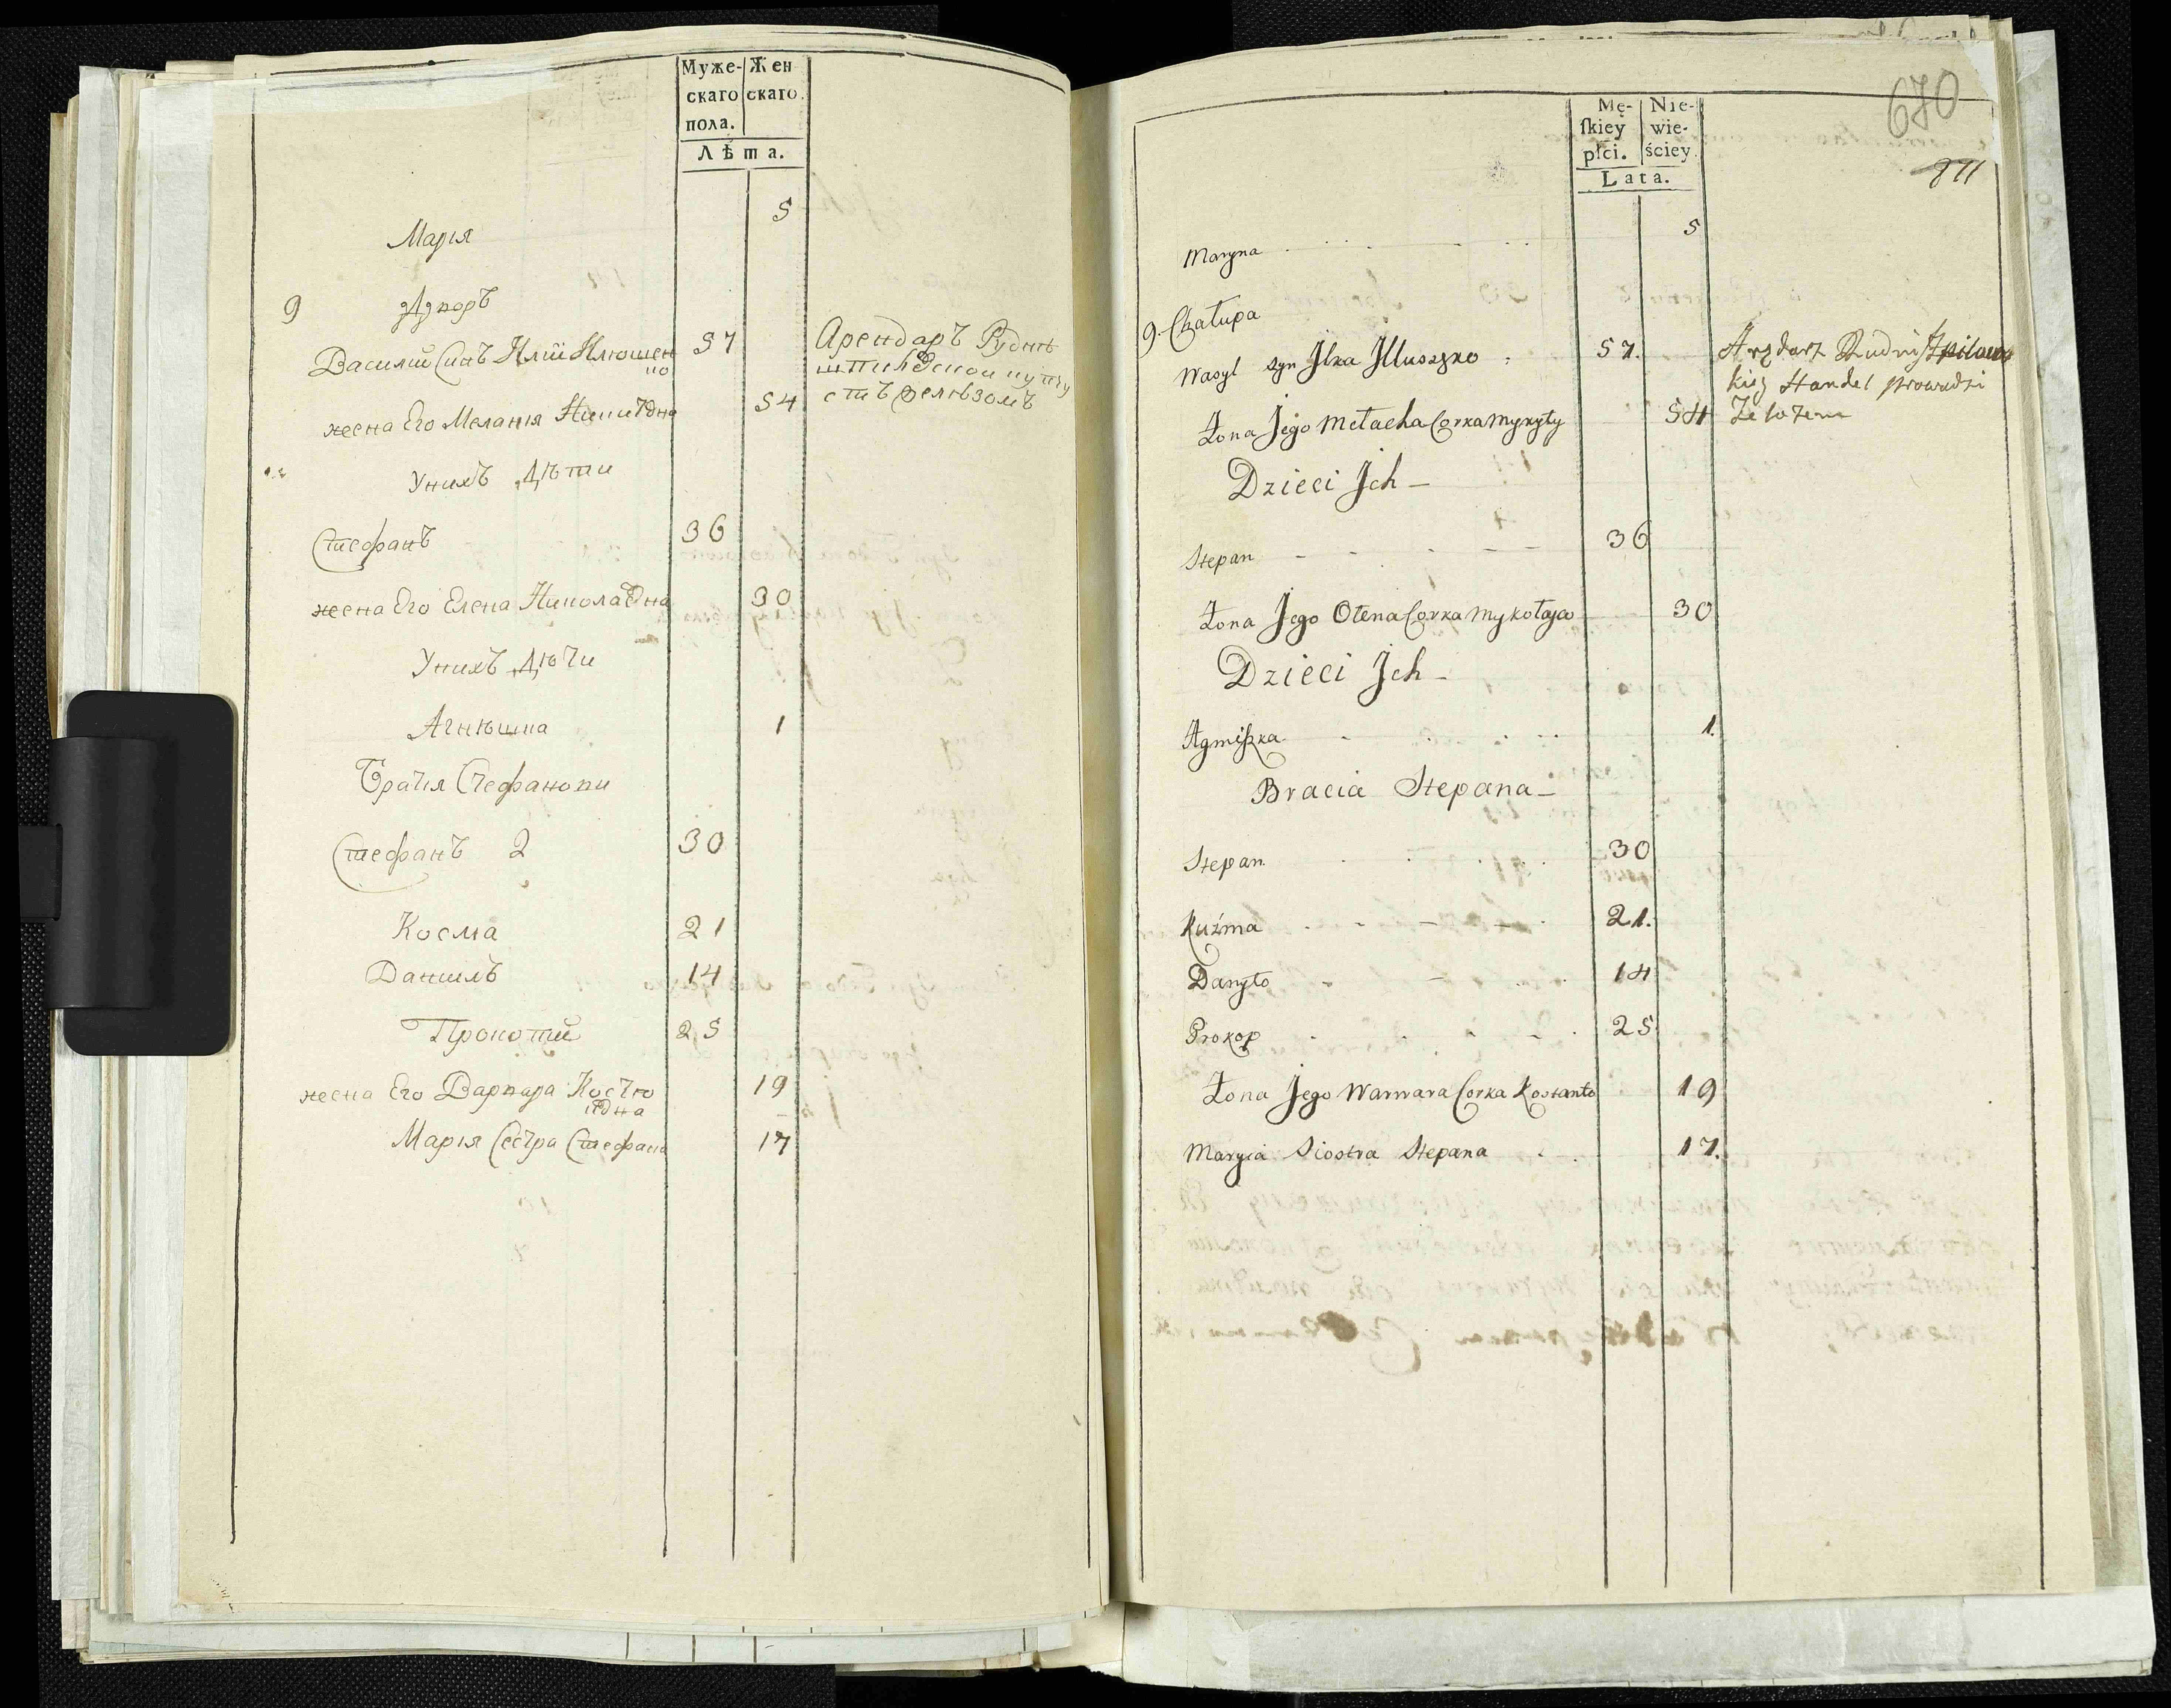 Муже- Жен
скаго скаго.
пола.
Лѣта.
5
Марія
9 Дворъ
Василій Синъ Иліи Илюшен 57 Арендаръ Рудни
ко
жена Его Меланія Никитѣвна 54
Унихъ Дѣти
Стефанъ 36
жена Его Елена Николаевна 30
Унихъ Дѣти
Агнѣшка 1
Братія Стефанови
Стефанъ 2 30
Косма 21
Данилъ 14
Прокопій 25
жена Его Варвара Костю 19
Марія Сестра Стефана 17
670
Mę- Nie-
ſkiey wie-
płci. ściey
Lata.
871
Maryna 5
9. Chałupa
Wasyl syn Jlka Jlluszko 57. Arędarz Rudni Szpilows
kiey Handel prowadzi
Żona Jego Mełacha Corka Mykyty 54 Żelazem
Dzieci Jch –
Stepan 36
Żona Jego Ołena Corka Mykołaja 30
Dzieci Jch –
Agniſzka 1.
Bracia Stepana –
Stepan 30
Kuźma 21.
Danyło 14
Prokop 25
Żona Jego Warwara Corka Kostanta 19
Maryia Siostra Stepana 17.